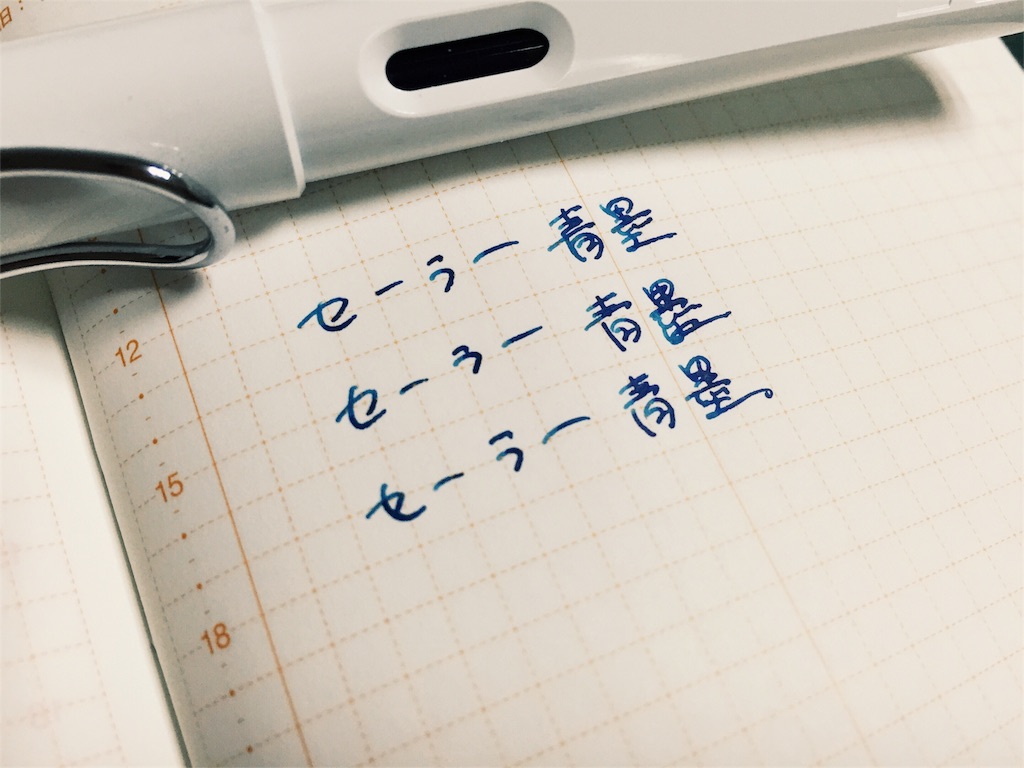 日:
セーラー 青墨
セーラー 青墨
セーラー 青墨。
12
15
18